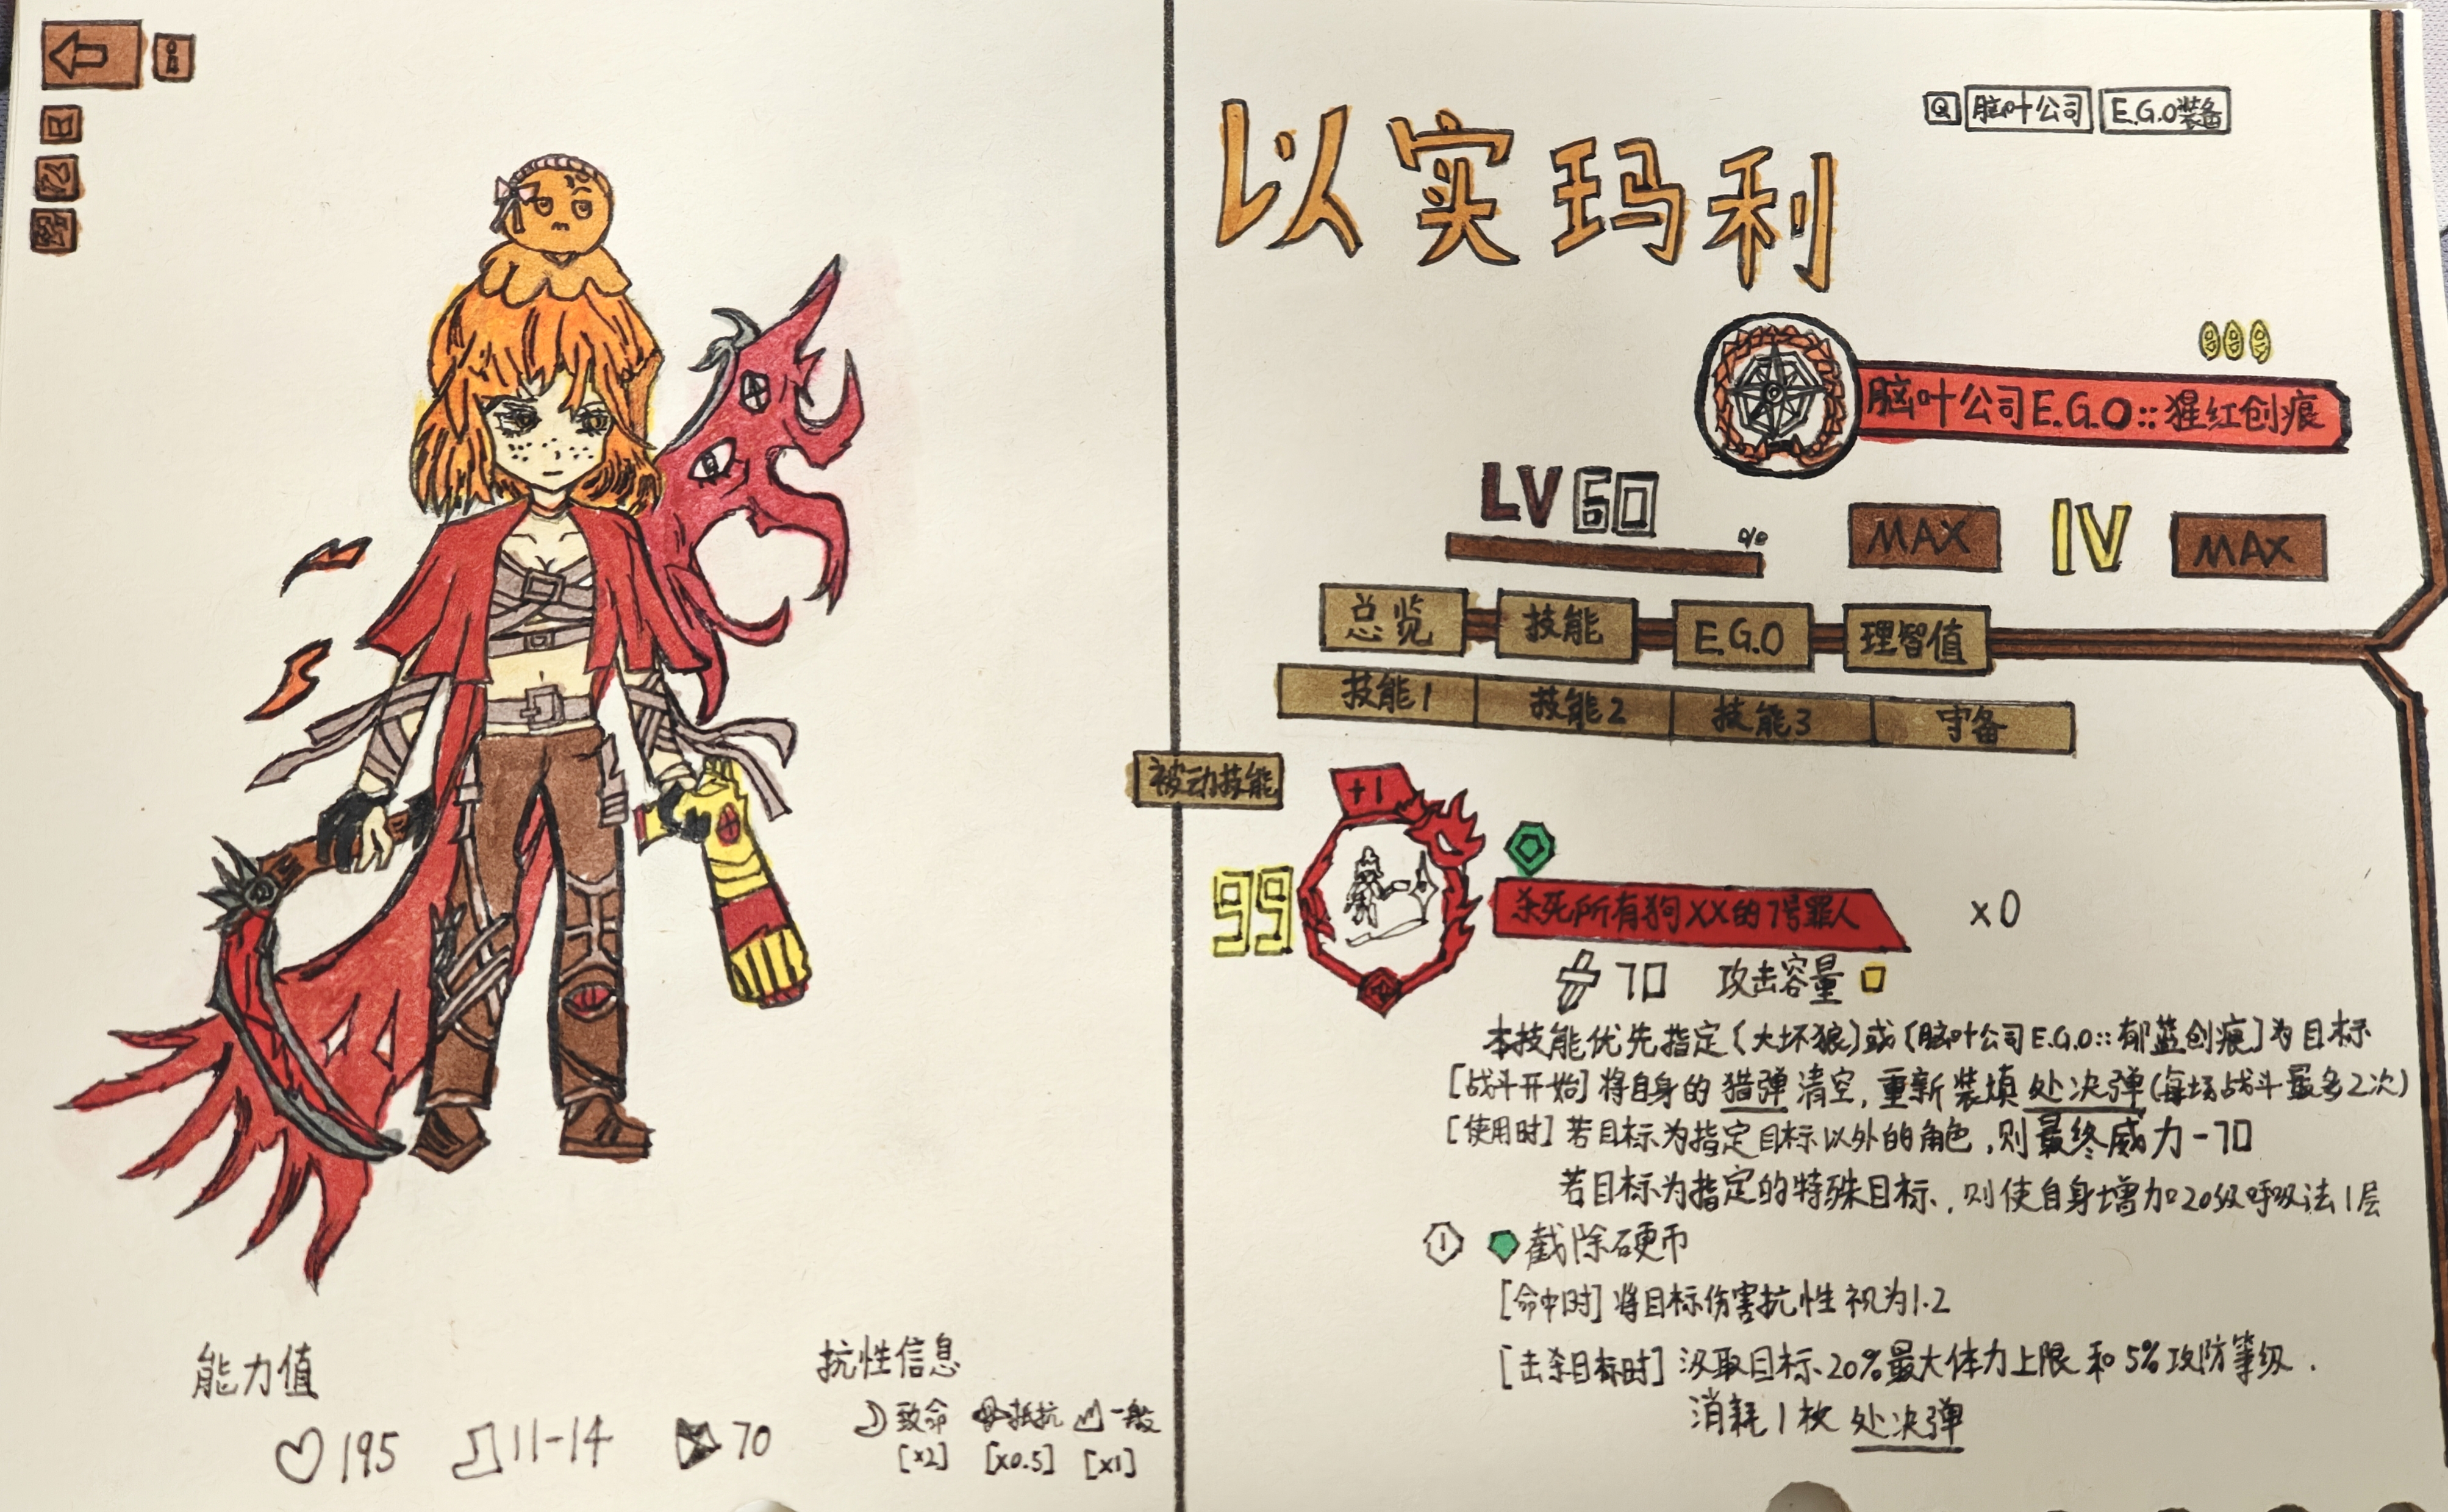 以实玛利
Q 脑叶公司 E.G.O装备
脑叶公司E.G.O::猩红创痕
LV 60
MAX IV MAX
总览 技能 E.G.O 理智值
技能1 技能2 技能3 守备
被动技能
+1
99
杀死所有狗XX的7号罪人 x0
70 攻击容量
本技能优先指定〔大坏狼〕或〔脑叶公司E.G.O::郁蓝创痕〕为目标
[战斗开始] 将自身的 猎弹 清空,重新装填 处决弹(每场战斗最多2次)
[使用时] 若目标为指定目标以外的角色,则最终威力-70
若目标为指定的特殊目标,则使自身增加20级呼吸法1层
1 截除硬币
[命中时] 将目标伤害抗性视为1.2
[击杀目标时] 汲取目标20%最大体力上限和5%攻防等级.
消耗1枚 处决弹
能力值
195 11-14 70
抗性信息
致命 抵抗 一般
[x2] [x0.5] [x1]